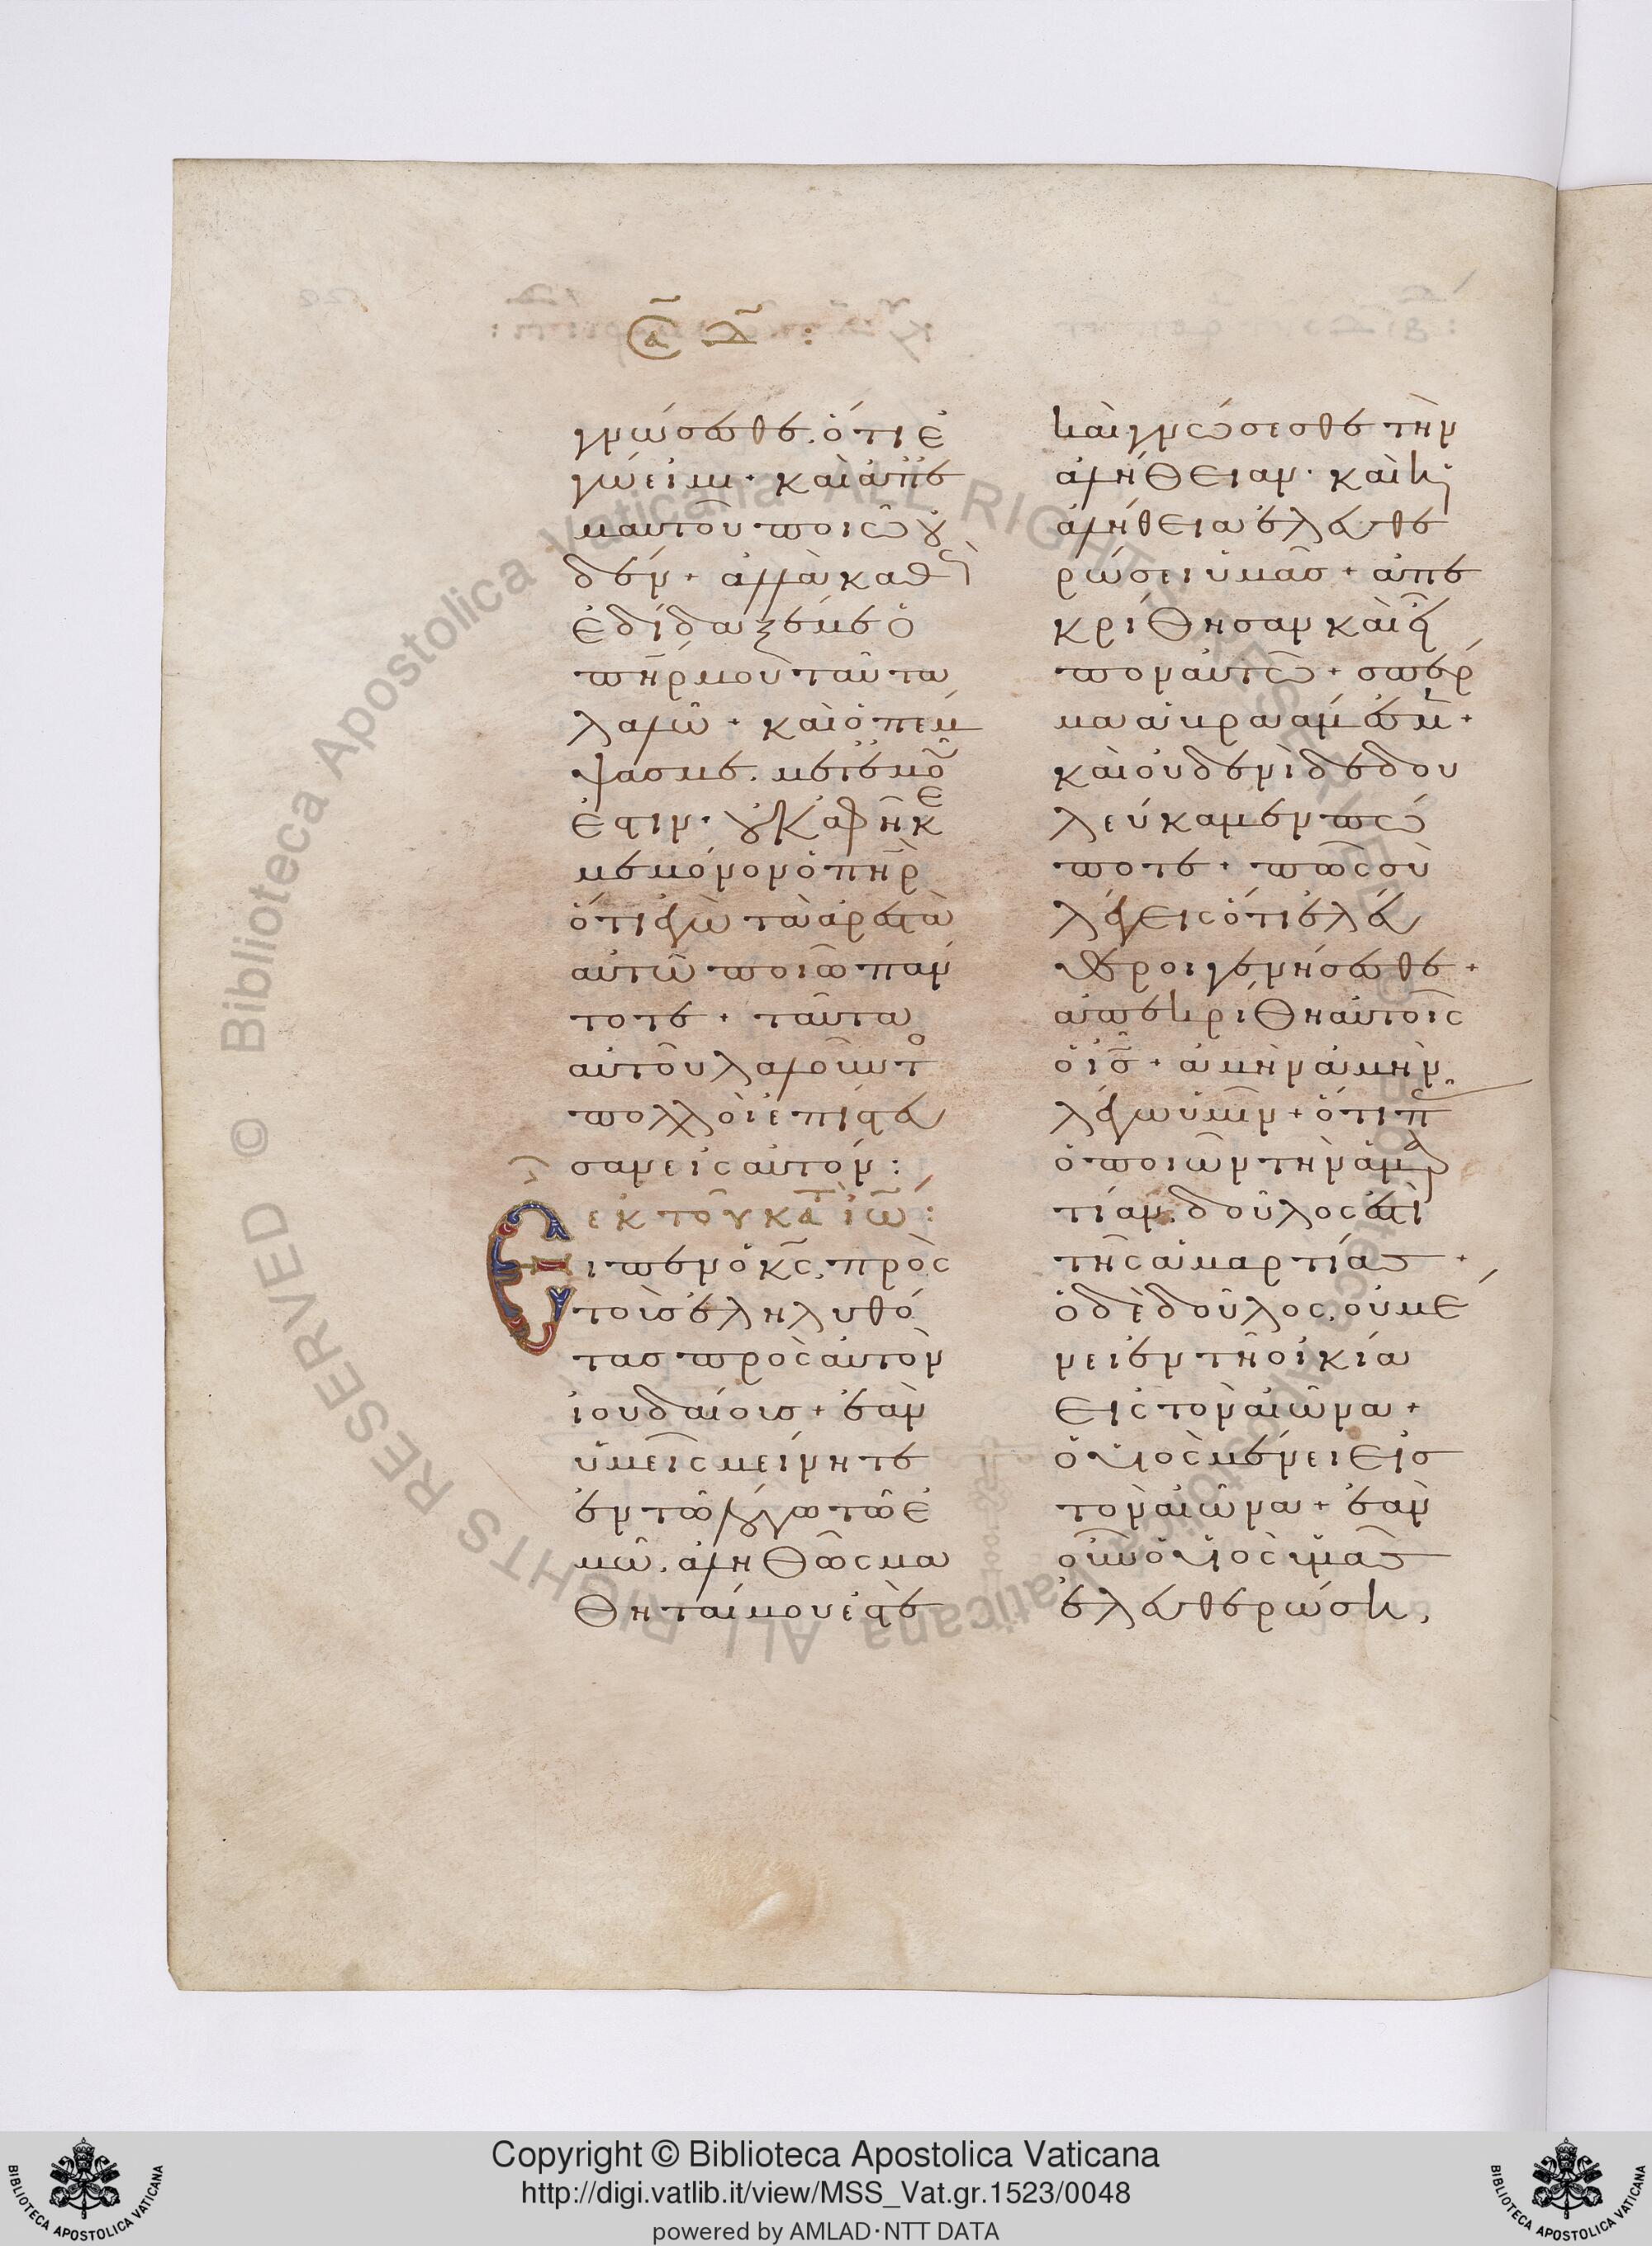 α δ :
γνώσεσθε. ὅτι ἐ
γώ εἰμι· καὶ ἀπ' ἐ
μαυτοῦ ποιῶ οὐ
δέν + ἀλλὰ καθὼς
ἐδίδαξέ με ὁ
πη̅ρ μου ταῦτα
λαλῶ + καὶ ὁ πέμ
ψας με. μετ' ἐμοῦ
ἐστιν· οὐκ ἀφῆκε
με μόνον ὁ πη̅ρ
ὅτι ἐγὼ τὰ ἀρεστὰ
αὐτῶ ποιῶ πάν
τοτε + ταῦτα
αὐτοῦ λαλοῦντο
πολλοὶ ἐπίστευ
σαν εἰς αὐτόν :
ἐκ τοῦ κατὰ ἰω :
Εἶπεν ὁ κ̅ς, πρὸς
τοὺς ἐληλυθό
τας πρὸς αὐτὸν
ἰουδαίους + ἐὰν
ὑμεῖς μείνητε
ἐν τῶ λόγω τῶ ἐ
μῶ. ἀληθῶς μα
θηταί μου ἐστὲ
καὶ γνώσεσθε τὴν
ἀλήθειαν· καὶ ἡ
ἀλήθεια ἐλευθε
ρώσει ὑμᾶς + ἀπε
κρίθησαν καὶ εἶ
πον αὐτῶ + σπέρ
μα ἀβραάμ ἐσμεν +
καὶ οὐδενὶ δεδου
λεύκαμεν πώ
ποτε + πῶς σὺ
λέγεις ὅτι ἐλεύ
θεροι γενήσεσθε +
ἀπεκρίθη αὐτοῖς
ὁ ι̅ς + ἀμὴν ἀμὴν
λέγω ὑμῖν + ὅτι πᾶς
ὁ ποιῶν τὴν ἁμαρ
τίαν, δοῦλος ἐστὶ
τῆς ἁμαρτίας +
ὁ δὲ δοῦλος, οὐ μέ
νει ἐν τῆ οἰκία
εἰς τὸν αἰῶνα +
ὁ υἱὸς μένει εἰς
τὸν αἰῶνα + ἐὰν
οὖν ὁ υἱὸς ὑμᾶς
ἐλευθερώση,
Copyright © Biblioteca Apostolica Vaticana
http://digi.vatlib.it/view/MSS_Vat.gr.1523/0048
powered by AMLAD·NTT DATA